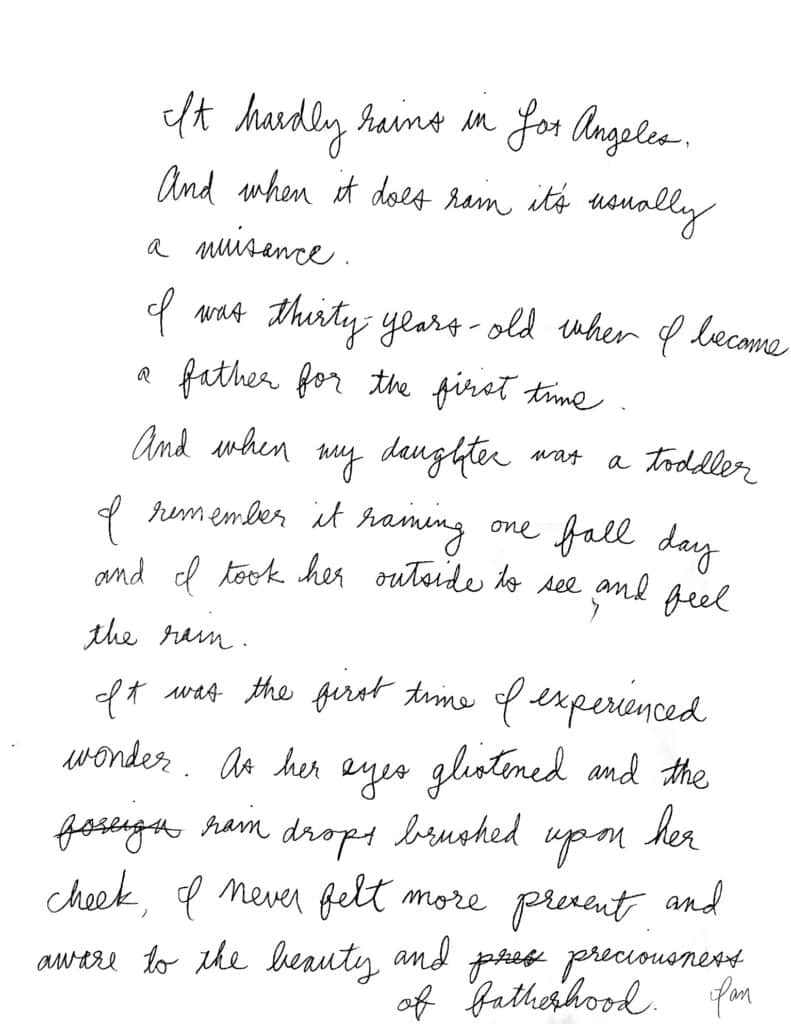 It hardly rains in Los Angeles.
And when it does rain it's usually
a nuisance.
I was thirty-years-old when I became
a father for the first time.
And when my daughter was a toddler
I remember it raining one fall day
and I took her outside to see, and feel
the rain.
It was the first time I experienced
wonder. As her eyes glistened and the
foreign rain drops brushed upon her
cheek, I never felt more present and
aware to the beauty and pres preciousness
of fatherhood. Ian